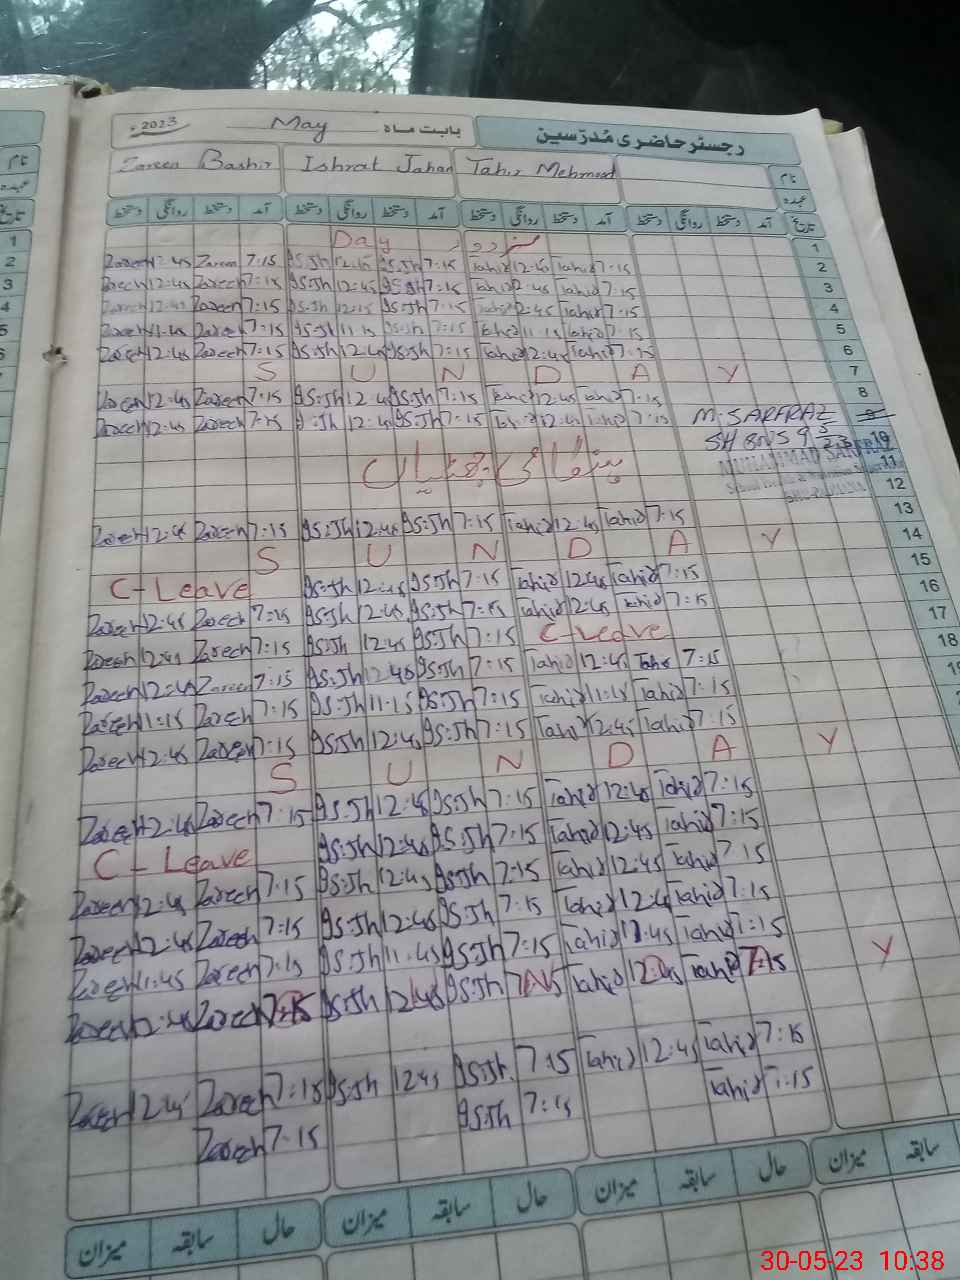 2023 May بابت ماہ رجسٹر حاضری مُدرّسین
Zareen Bashir Ishrat Jahan Tahir Mehmood نام
عہدہ
دستخط روانگی دستخط آمد دستخط روانگی دستخط آمد دستخط روانگی دستخط آمد دستخط روانگی دستخط آمد تاریخ
Day مزدور 1
Zareen 12:45 Zareen 7:15 Is:Jh 12:45 Is:Jh 7:15 Tahir 12:45 Tahir 7:15 2
Zareen 12:45 Zareen 7:15 Is:Jh 12:45 Is:Jh 7:15 Tahir 12:45 Tahir 7:15 3
Zareen 12:45 Zareen 7:15 Is:Jh 12:15 Is:Jh 7:15 Tahir 12:45 Tahir 7:15 4
Zareen 11:15 Zareen 7:15 Is:Jh 11:15 Is:Jh 7:15 Tahir 11:15 Tahir 7:15 5
Zareen 12:45 Zareen 7:15 Is:Jh 12:45 Is:Jh 7:15 Tahir 12:45 Tahir 7:15 6
S U N D A Y 7
Zareen 12:45 Zareen 7:15 Is:Jh 12:45 Is:Jh 7:15 Tahir 12:45 Tahir 7:15 8
Zareen 12:45 Zareen 7:15 Is:Jh 12:45 Is:Jh 7:15 Tahir 12:45 Tahir 7:15 M. SARFRAZ 9
10
MUHAMMAD SARFRAZ 11
ہنگامی چھٹیاں 12
Zareen 12:45 Zareen 7:15 Is:Jh 12:45 Is:Jh 7:15 Tahir 12:45 Tahir 7:15 13
S U N D A Y 14
C-Leave Is:Jh 12:45 Is:Jh 7:15 Tahir 12:45 Tahir 7:15 15
Zareen 12:45 Zareen 7:15 Is:Jh 12:45 Is:Jh 7:15 Tahir 12:45 Tahir 7:15 16
Zareen 12:45 Zareen 7:15 Is:Jh 12:45 Is:Jh 7:15 C-Leave 17
Zareen 12:45 Zareen 7:15 Is:Jh 12:45 Is:Jh 7:15 Tahir 12:45 Tahir 7:15 18
Zareen 11:15 Zareen 7:15 Is:Jh 11:15 Is:Jh 7:15 Tahir 11:15 Tahir 7:15
Zareen 12:45 Zareen 7:15 Is:Jh 12:45 Is:Jh 7:15 Tahir 12:45 Tahir 7:15
S U N D A Y
Zareen 12:45 Zareen 7:15 Is:Jh 12:45 Is:Jh 7:15 Tahir 12:45 Tahir 7:15
C-Leave Is:Jh 12:45 Is:Jh 7:15 Tahir 12:45 Tahir 7:15
Zareen 12:45 Zareen 7:15 Is:Jh 12:45 Is:Jh 7:15 Tahir 12:45 Tahir 7:15
Zareen 12:45 Zareen 7:15 Is:Jh 12:45 Is:Jh 7:15 Tahir 12:45 Tahir 7:15
Zareen 11:45 Zareen 7:15 Is:Jh 11:45 Is:Jh 7:15 Tahir 11:45 Tahir 7:15
Zareen 12:45 Zareen 7:15 Is:Jh 12:45 Is:Jh 7:15 Tahir 12:45 Tahir 7:15 Y
Zareen 12:45 Zareen 7:15 Is:Jh 12:45 Is:Jh 7:15 Tahir 12:45 Tahir 7:15
Zareen 7:15 Is:Jh 7:15 Tahir 7:15
میزان سابقہ حال میزان سابقہ حال میزان سابقہ حال میزان سابقہ
30-05-23 10:38